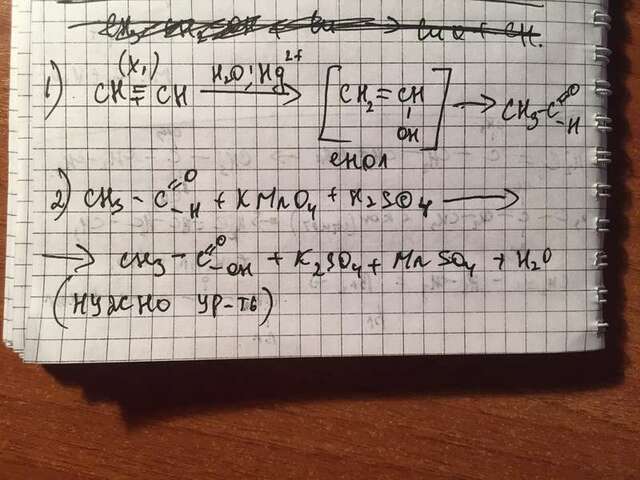 (X₁) H₂O, Hg²⁺
1) CH≡CH ⟶ [CH₂=CH] → CH₃-C=O
OH H
енол
2) CH₃-C=O-H + KMnO₄ + K₂SO₄ ⟶
→ CH₃-C=O-OH + K₂SO₄ + MnSO₄ + H₂O
(Нужно ур-ть)